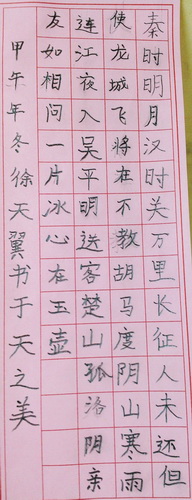 秦时明月汉时关万里长征人未还但
使龙城飞将在不教胡马度阴山寒雨
连江夜入吴平明送客楚山孤洛阴亲
友如相问一片冰心在玉壶
甲午年冬徐天翼书于天之美